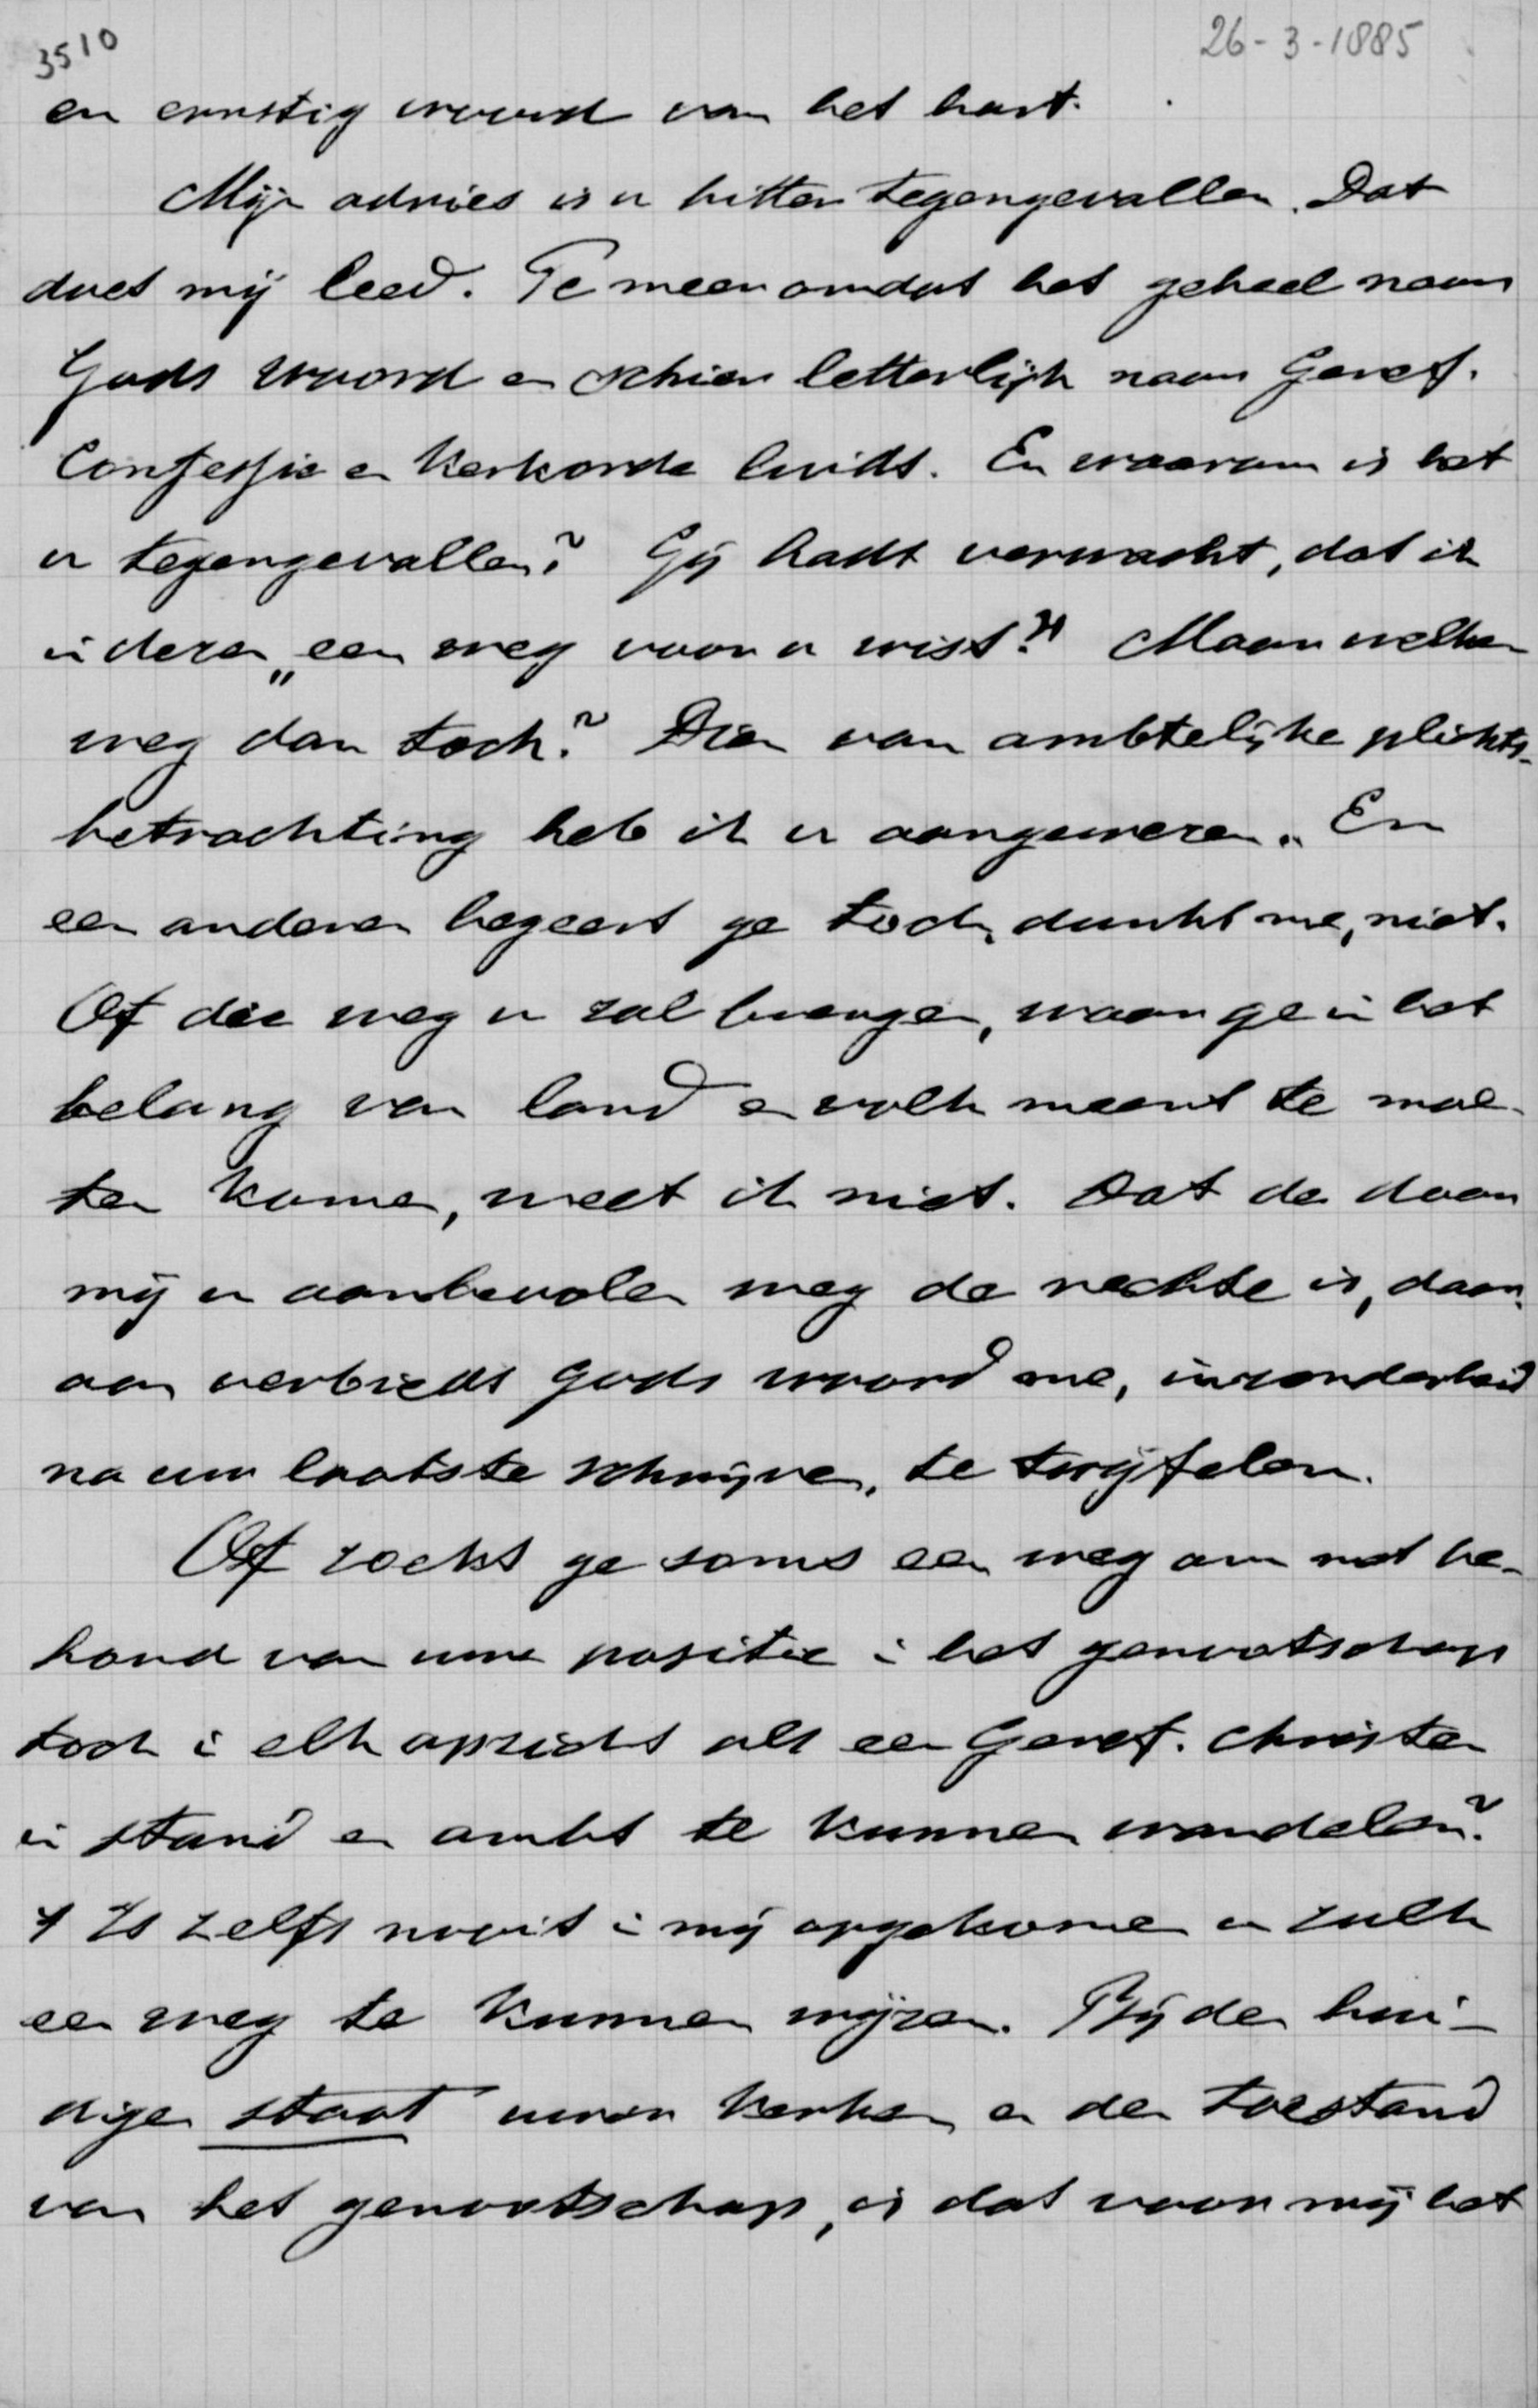 3510
26-3-1885
en ernstig woord van het hart.
Mijn advies is u bitter tegengevallen. Dat
doet mij leed. Te meer omdat het geheel naar
Gods woord en schier letterlijk naar Geref.
Confessie en Kerkorde luidt. En waarom is het
u tegengevallen? Gij hadt verwacht, dat ik
in dezen „een weg voor u wist?" Maar welken
weg dan toch? Dien van ambtelijke plichts-
betrachting heb ik u aangewezen. En
een anderen begeert ge toch, dunkt me, niet.
Of die weg u zal brengen, waar ge in het
belang van land en volk meent te moe-
ten komen, weet ik niet. Dat de door
mij u aanbevolen weg de rechte is, daar-
aan verbiedt Gods woord me, inzonderheid
na uw laatste schrijven, te twijfelen.
Of zocht ge soms een weg om met be-
houd van uwe positie in het genootschap
toch in elk opzicht als een Geref. Christen
in stand en ambt te kunnen wandelen?
't Is zelfs nooit in mij opgekomen u zulk
een weg te kunnen wijzen. Bij den hui-
digen staat uwer kerken en den toestand
van het genootschap, is dat voor mij het